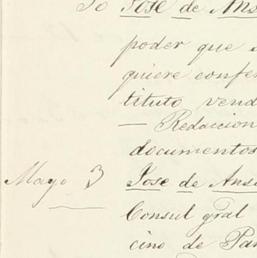 Yo Jose de Ans
poder que
quiere confer
tituto vend
— Redaccion
documentos
Mayo 3 Jose de Ans
Consul gral
cino de Par